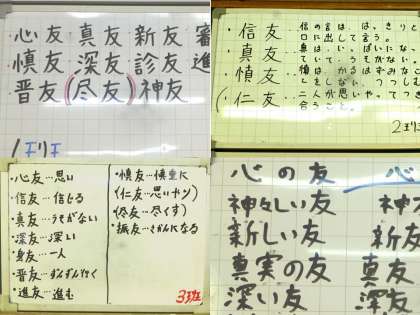 心友 真友 新友 審
慎友 深友 診友 進
晋友 (尽友) 神友
1班
・信友
・真友
・慎友
(仁友
信の言は、はっきりと
口に出して言う。
真は、いっぱいに
ていて、うそがない。
二人が思いやってつき
合うこと。
2班
・心友…思い
・信友…信じる
・真友…うそがない
・深友…深い
・身友…一人
・晋友…ずんずん行く
・進友…進む
・慎友…慎重に
(仁友…思いやり)
(尽友…尽くす)
・振友…さかんになる
3班
心の友 心
神々しい友 神友
新しい友 新友
真実の友 真友
深い友 深友